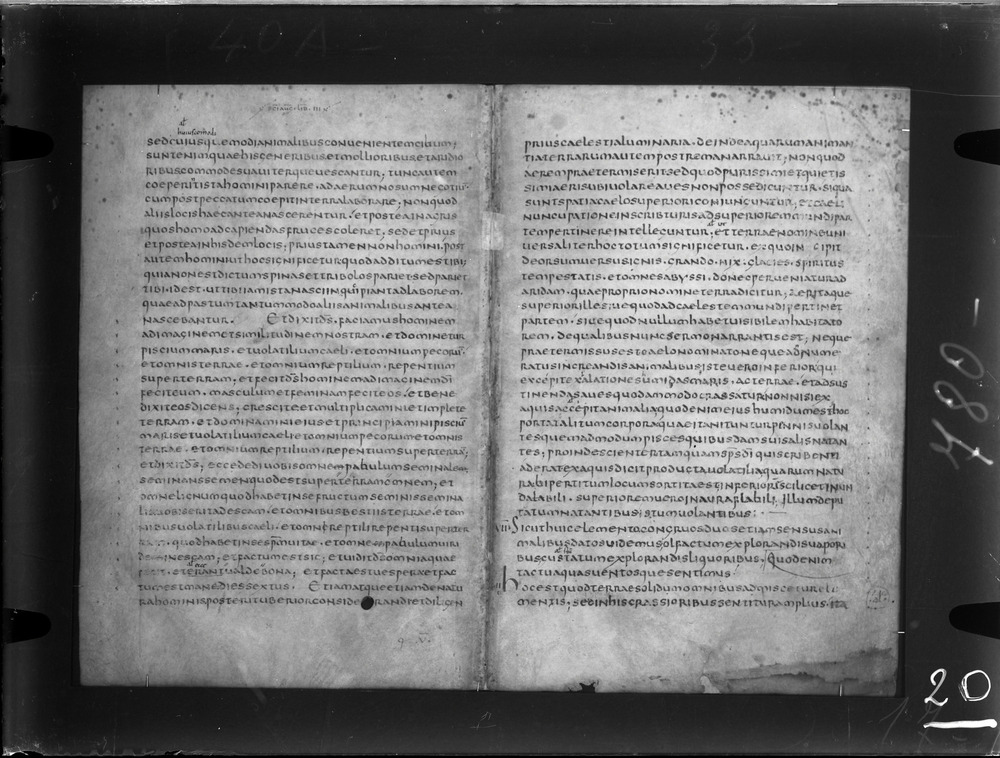 sci aug lib III
seđ cuiusq. emodi animalibus conuenientem cibum,
sunt enim quae his generibus et mollioribus et arido
ribus commode suauiterque uescantur, tunc autem
cum post peccatum coepit in terra laborare, non quod
aliis locis haec ante nascerentur. et postea in acris
quos homo ad capiendas fruges coleret, sed et prius
et postea in hisdem locis, prius tamen non homini. post
autem homini ut hoc significetur quod additum est tibi
quia non est dictum spinas et tribolos pariet sed pariet
tibi. id est. ut tibi iam ista nasci inquipiant ad laborem.
quae ad pastum tantummodo aliis animalibus antea
nascebantur. Et dixit ds. faciamus hominem
ad imaginem et similitudinem nostram. et dominetur
piscium maris. et uolatilium caeli. et omnium pecorum
et omnis terrae. et omnium reptilium repentium
super terram, et fecit ds hominem ad imaginem di
fecit eum. masculum et feminam fecit eos. et bene
dixit eos dicens, crescite et multiplicamini et implete
terram. et dominamini eius et principiamini pisciu
maris et uolatilium caeli et omnium pecorum et omnis
terrae. et omnium reptilium repentium super terra,
et dixit ds, ecce dedi uobis omne pabulum seminale
seminans semen quod est super terram omnem, et
omne lignum quod habet in se fructum seminis semina
lis uobis erit ad escam. et omnibus bestiis terrae. et om
nibus uolatilibus caeli. et omni reptili repenti super ter
quod habet in se spm uitae. et omne pabulum uiri
de in escam, et factum est sic, et uidit ds omnia quae
fecit. et erant ualde bona, et facta est uespera et fac
tum est mane dies sextus. Etiam atque etiam de natu
ra hominis posterit uberior considerandi et diligen
q. V.
prius caelestia luminaria. deinde aquarum animan
tia terrarum autem postrema narrauit, non quod
aerem praetermiserit sed quod purissimi et quietis
simi aeris ubi uolare aues non posse dicuntur. siqua
sunt spatia caelo superiori coniunguntur, et caeli
nuncupatione inscribturis ad superiorem mundi par
tem pertinere intelleguntur, et terrae nomine uni
uersaliter hoc totum significetur. ex quo incipit
deorsum uersus ignis. grando. nix. glacies. spiritus
tempestatis. et omnes abyssi. donec perueniatur ad
aridam. quae proprio nomine terra dicitur,
superior ille siue quod ad caelestem mundi pertinet
partem. siue quod nullum habet uisibilem habitato
rem. de qualibus nunc sermo narrantis est, neque
praetermissus est caelo nominato neque adnume
ratus in creandis animalibus iste uero inferior qui
excepit exalationes umidas maris. ac terrae. et ad sus
tinendas aues quodammodo crassatur non nisi ex
aquis accepit animalia quod enim eius humidum est hoc
portat alitum corpora quae ita nituntur pinnis uolan
tes quemadmodum pisces quibusdam suis alis natan
tes, proinde scienter tamquam sps di qui scribenti
aderat ex aquis dicit producta uolatilia quarum natu
ra bipertitum locum sortita est inferiorem scilicet in un
da labili. superiorem uero in aura flabili, illum depu
tatum natantibus istum uolantibus:
VII Sicut huic elemento congruos duos etiam sensus ani
malibus datos uidemus olfactum explorandis uapori
bus gustatum explorandis liquoribus. Quod enim
tactu aquas uentosque sentimus
hoc est quod terrae solidum omnibus admiscetur ele
mentis, sed in his crassioribus sentitur amplius. ita
780 -
20